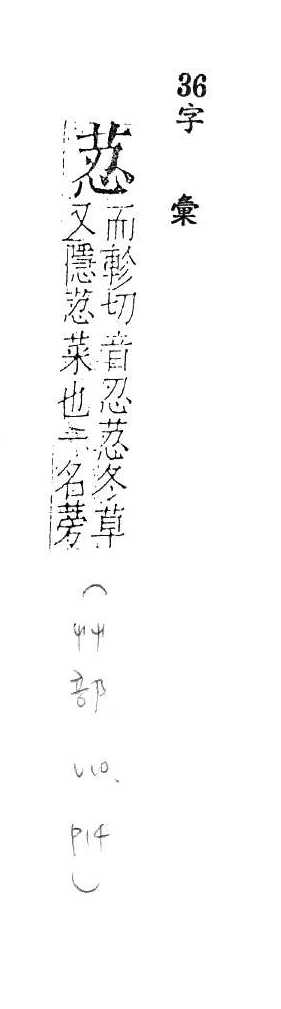 36字彙
荵
而軫切音忍荵冬草
又隱荵菜也一名蒡
(艸部 V10. P14)